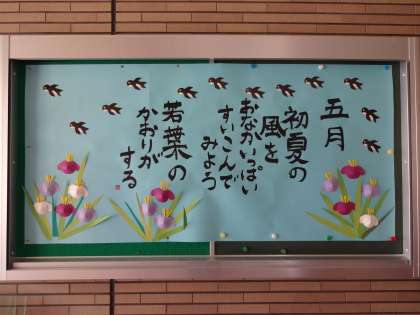 五月
初夏の
風を
おなかいっぱい
すいこんで
みよう
若葉の
かおりが
する